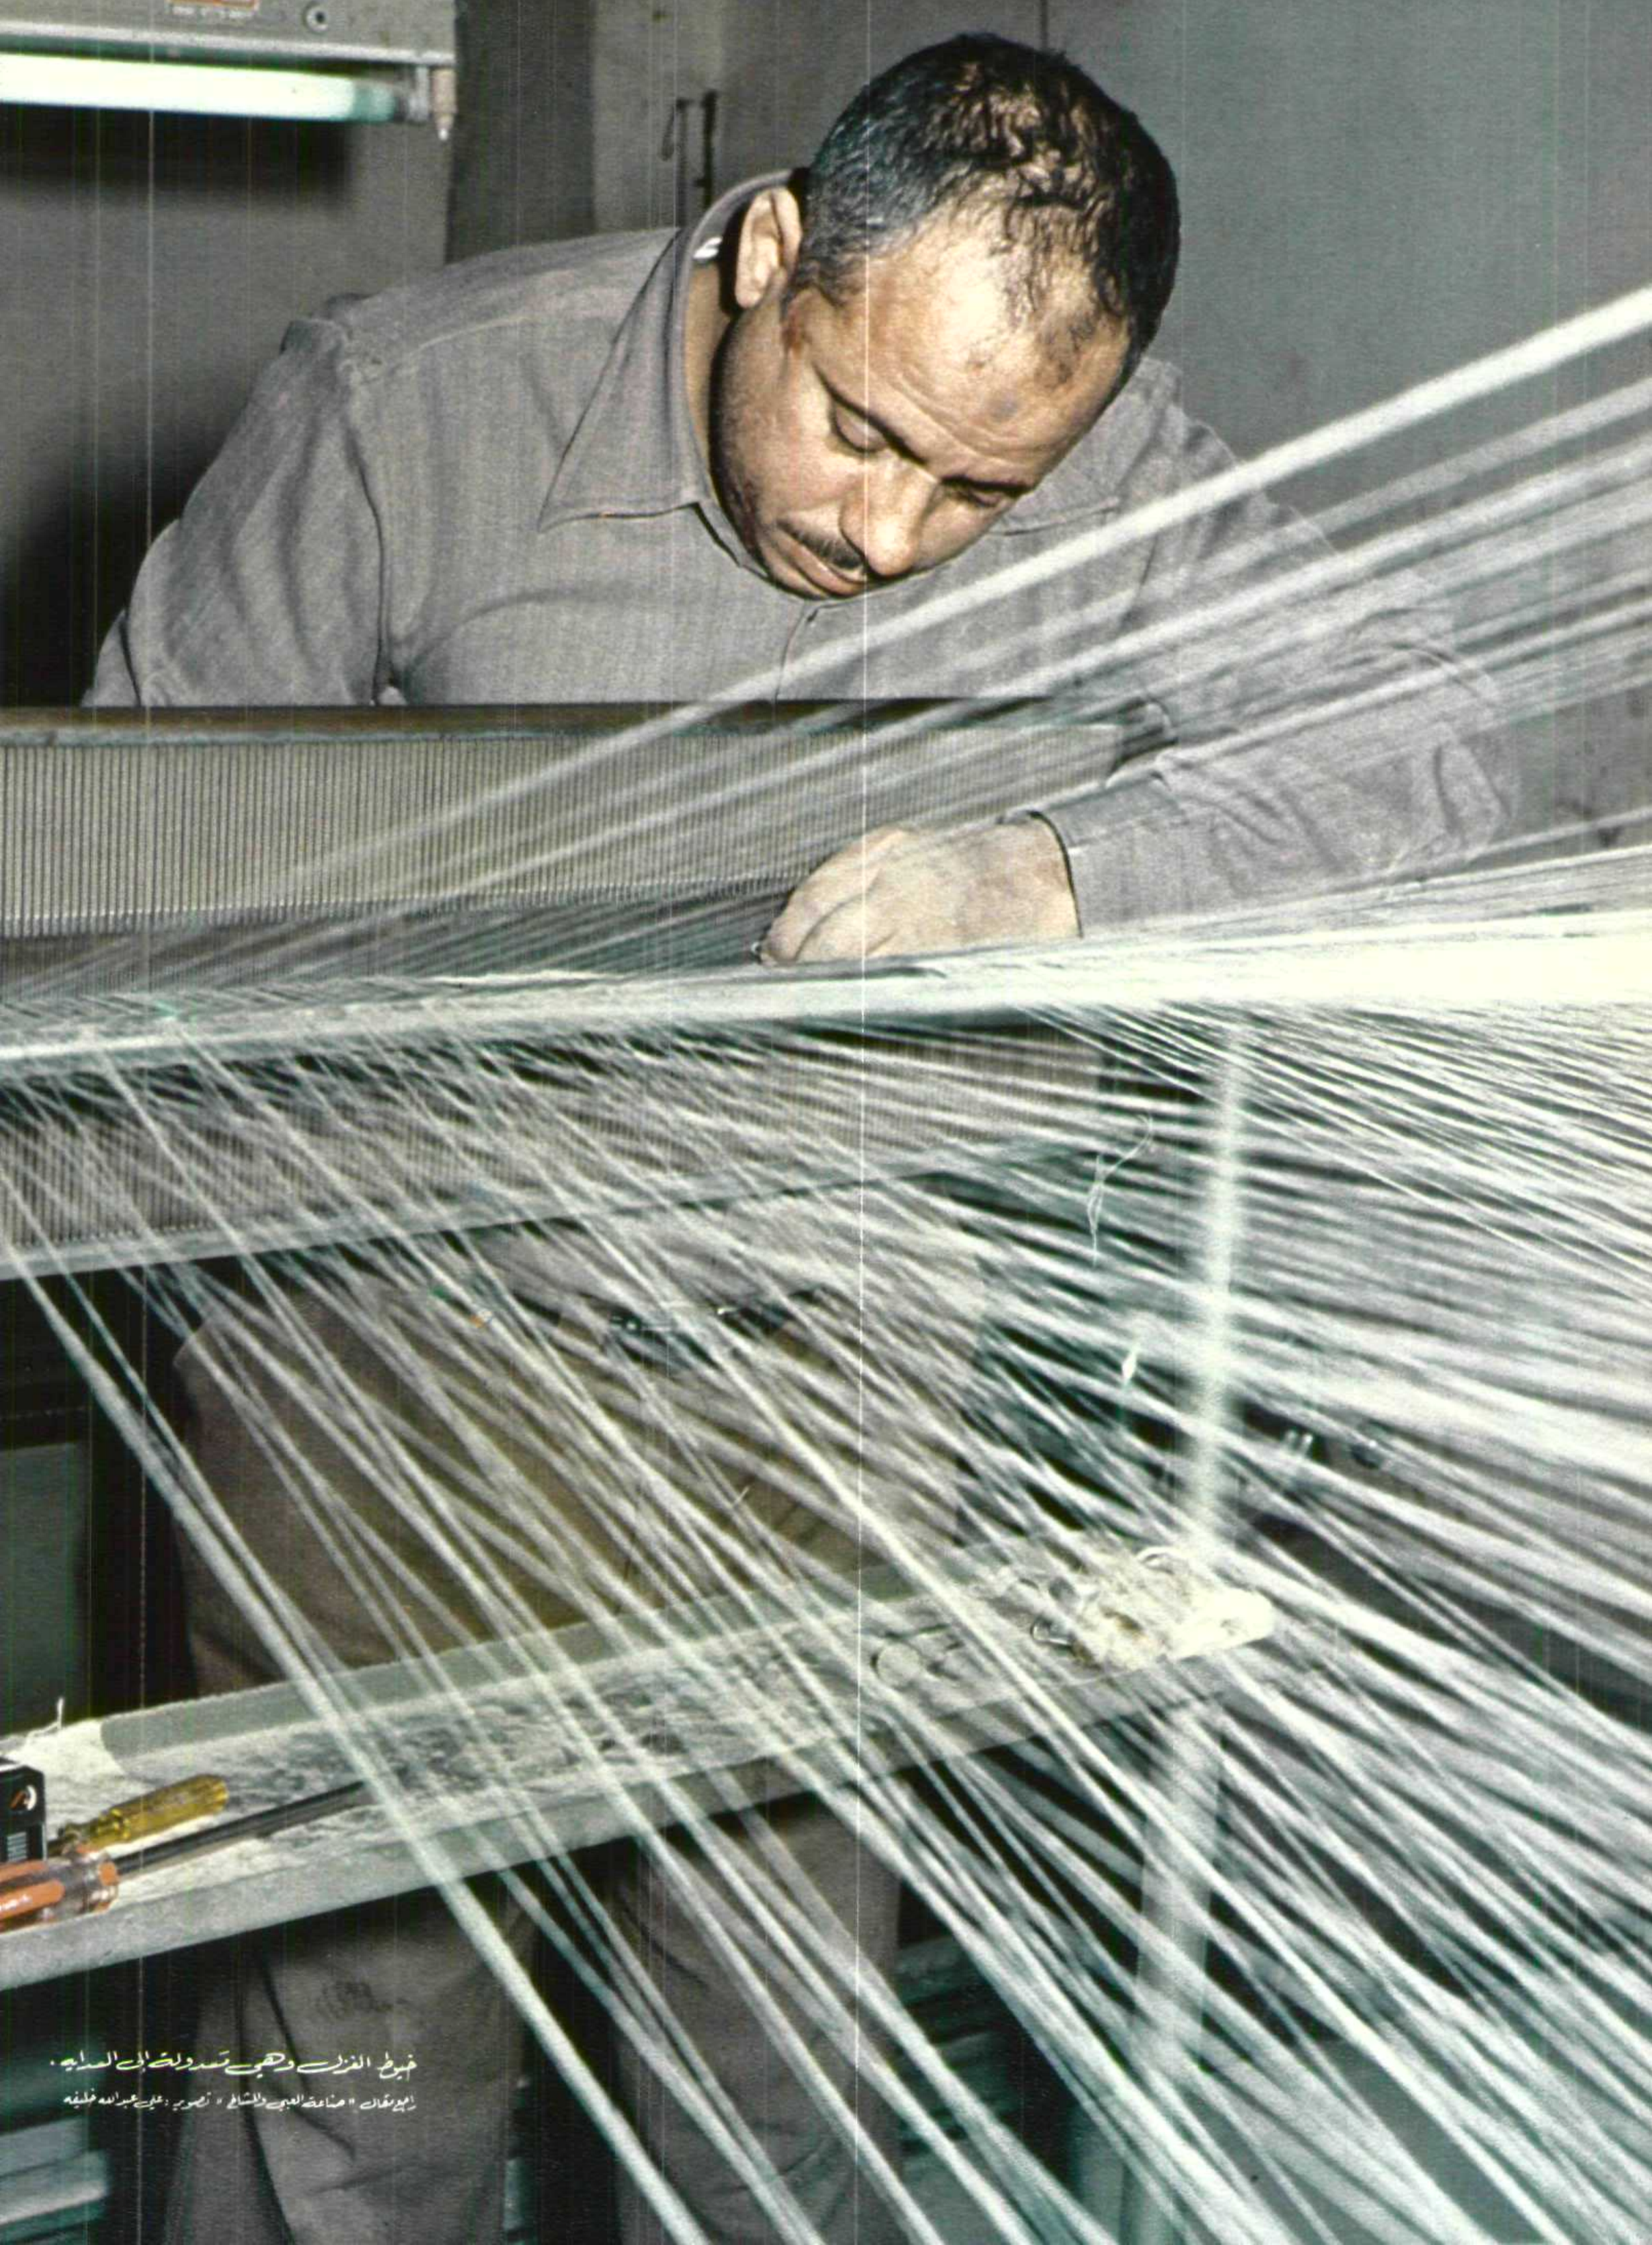 خيوط الغزل وهي تعد ولة الى العداية .
راجع مقال " صناعة العبي والمشالح " تصوير : علي عبد الله خليفه